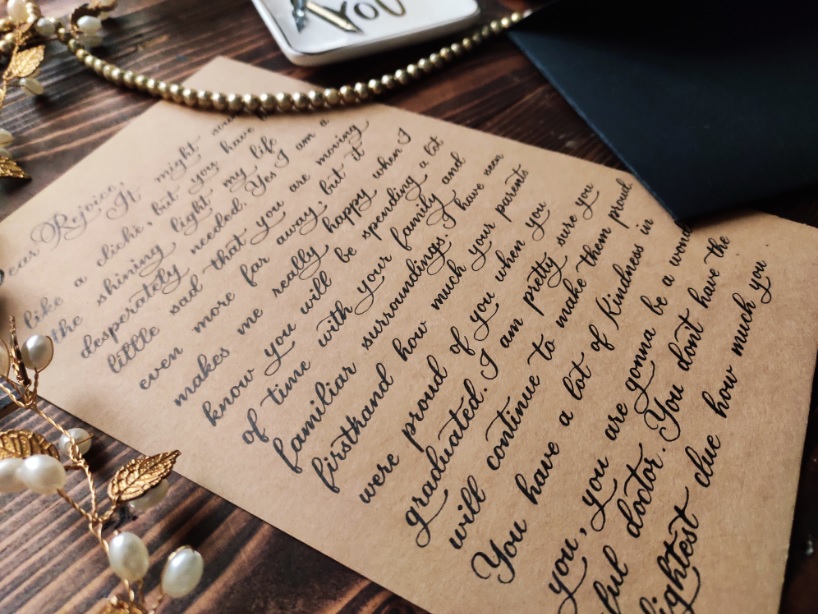 You
Dear Rejoice,
It might
like a cliché, but you have
the shining light my life
desperately needed. Yes I am a
little sad that you are moving
even more far away, but it
makes me really happy when I
know you will be spending a lot
of time with your family and
familiar surroundings. I have seen
firsthand how much your parents
were proud of you when you
graduated. I am pretty sure you
will continue to make them proud
You have a lot of Kindness in
you, you are gonna be a
doctor. You don't have the
clue how much you